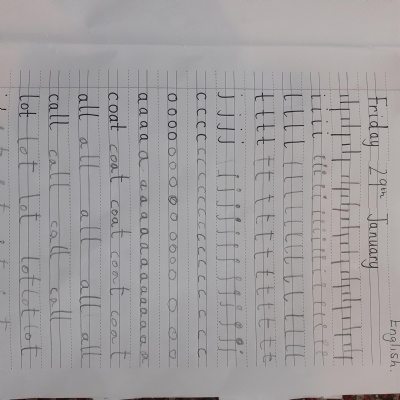 English.
Friday 29th January
i i i i i i i i i i i i i i
l l l l l l l l l l l l l l
t t t t t t t t t t t t t t
j j j j j j j j j j j j j j
c c c c c c c c c c c c c c c
o o o o o o o o o o o o o o
a a a a a a a a a a a a a a a
coat coat coat coat coat
all all all all all
call call call call
lot lot lot lot lot lot